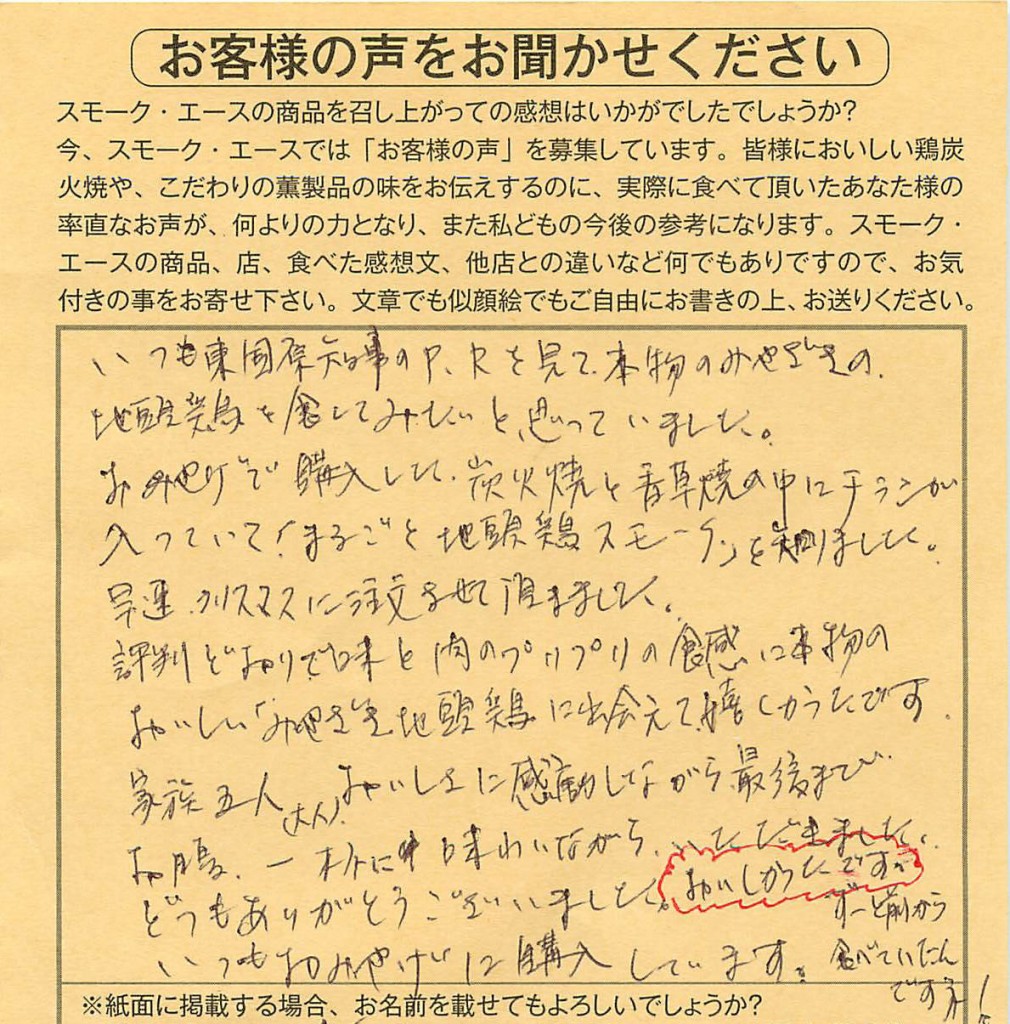 お客様の声をお聞かせください
スモーク・エースの商品を召し上がっての感想はいかがでしたでしょうか?
今、スモーク・エースでは「お客様の声」を募集しています。皆様においしい鶏炭
火焼や、こだわりの薫製品の味をお伝えするのに、実際に食べて頂いたあなた様の
率直なお声が、何よりの力となり、また私どもの今後の参考になります。スモーク・
エースの商品、店、食べた感想文、他店との違いなど何でもありですので、お気
付きの事をお寄せ下さい。文章でも似顔絵でもご自由にお書きの上、お送りください。
いつも東国原知事のP.Rを見て、本物のみやざきの
地頭鶏を食してみたいと思っていました。
おみやげで購入した、炭火焼と香草焼の中にチラシが
入っていて!まるごと地頭鶏スモークを知りました。
早速クリスマスに注文させて頂きました。
評判どおりで味と肉のプリプリの食感に本物の
おいしい「みやざき地頭鶏に出会えて嬉しかったです。
家族五人(大人)おいしさに感動しながら最後まで
お腹一杯に味わいながら、いただきました。
どうもありがとうございました。おいしかったです。
ずーと前から
食べていたん
ですネ
いつもおみやげに購入しています。
※紙面に掲載する場合、お名前を載せてもよろしいでしょうか?